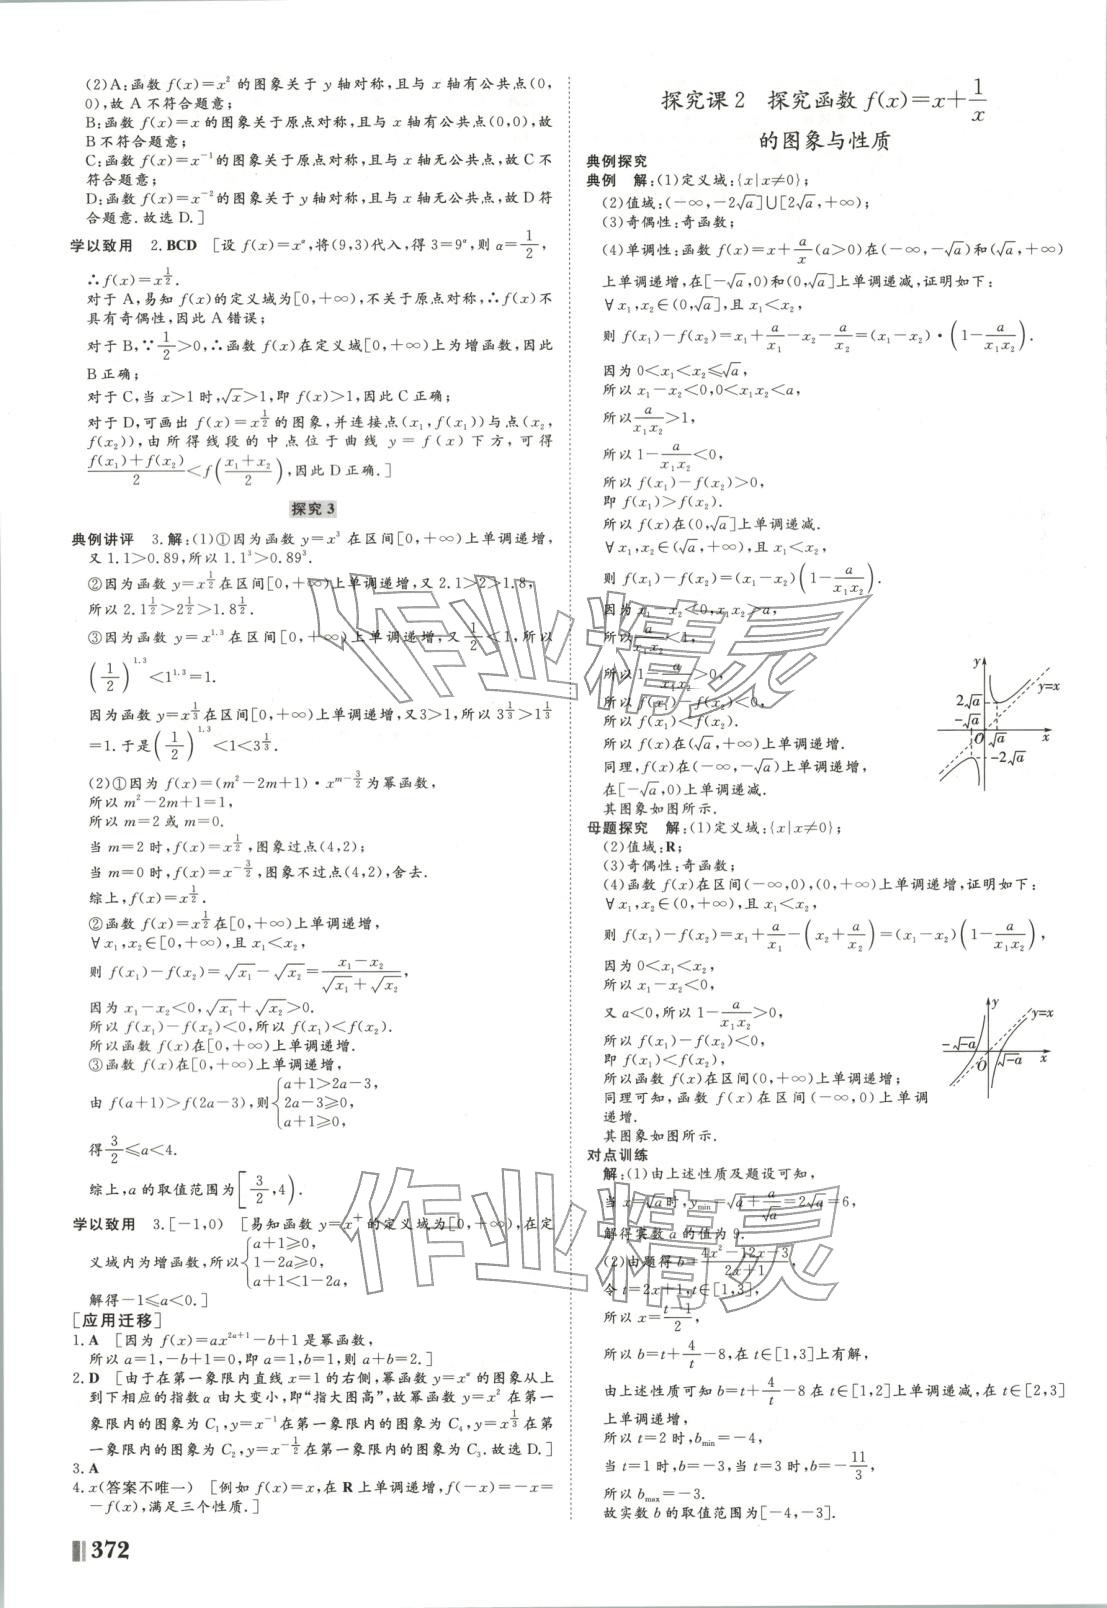 (2)A:函数 f(x)=x² 的图象关于 y 轴对称,且与 x 轴有公共点(0,
0),故 A 不符合题意;
B:函数 f(x)=x 的图象关于原点对称,且与 x 轴有公共点(0,0),故
B 不符合题意;
C:函数 f(x)=x⁻¹ 的图象关于原点对称,且与 x 轴无公共点,故 C 不
符合题意;
D:函数 f(x)=x⁻² 的图象关于 y 轴对称,且与 x 轴无公共点,故 D 符
合题意.故选 D.]
学以致用 2.BCD [设 f(x)=x^α,将(9,3)代入,得 3=9^α,则 α=1/2,
∴f(x)=x^(1/2).
对于 A,易知 f(x)的定义域为[0,+∞),不关于原点对称,∴f(x)不
具有奇偶性,因此 A 错误;
对于 B,∵1/2>0,∴函数 f(x)在定义域[0,+∞)上为增函数,因此
B 正确;
对于 C,当 x>1 时,√x>1,即 f(x)>1,因此 C 正确;
对于 D,可画出 f(x)=x^(1/2)的图象,并连接点(x₁,f(x₁))与点(x₂,
f(x₂)),由所得线段的中点位于曲线 y=f(x)下方,可得
(f(x₁)+f(x₂))/2<f((x₁+x₂)/2),因此 D 正确.]
探究 3
典例讲评 3.解:(1)①因为函数 y=x³ 在区间[0,+∞)上单调递增,
又 1.1>0.89,所以 1.1³>0.89³.
②因为函数 y=x^(1/2)在区间[0,+∞)上单调递增,又 2.1>2>1.8,
所以 2.1^(1/2)>2^(1/2)>1.8^(1/2).
③因为函数 y=x^1.3 在区间[0,+∞)上单调递增,又 1/2<1,所以
(1/2)^1.3<1^1.3=1.
因为函数 y=x^(1/3)在区间[0,+∞)上单调递增,又3>1,所以 3^(1/3)>1^(1/3)
=1.于是(1/2)^1.3<1<3^(1/3).
(2)①因为 f(x)=(m²-2m+1)·x^(m-3/2)为幂函数,
所以 m²-2m+1=1,
所以 m=2 或 m=0.
当 m=2 时,f(x)=x^(1/2),图象过点(4,2);
当 m=0 时,f(x)=x^(-3/2),图象不过点(4,2),舍去.
综上,f(x)=x^(1/2).
②函数 f(x)=x^(1/2)在[0,+∞)上单调递增,
∀x₁,x₂∈[0,+∞),且 x₁<x₂,
则 f(x₁)-f(x₂)=√x₁-√x₂=(x₁-x₂)/(√x₁+√x₂),
因为 x₁-x₂<0,√x₁+√x₂>0.
所以 f(x₁)-f(x₂)<0,所以 f(x₁)<f(x₂).
所以函数 f(x)在[0,+∞)上单调递增.
③函数 f(x)在[0,+∞)上单调递增,
由 f(a+1)>f(2a-3),则{a+1>2a-3,
2a-3≥0,
a+1≥0,
得3/2≤a<4.
综上,a 的取值范围为[3/2,4).
学以致用 3.[-1,0) [易知函数 y=x的定义域为[0,+∞),在定
义域内为增函数,所以{a+1≥0,
1-2a≥0,
a+1<1-2a,
解得-1≤a<0.]
[应用迁移]
1.A [因为 f(x)=ax^(2a+1)-b+1 是幂函数,
所以 a=1,-b+1=0,即 a=1,b=1,则 a+b=2.]
2.D [由于在第一象限内直线 x=1 的右侧,幂函数 y=x^α 的图象从上
到下相应的指数 α 由大变小,即“指大图高”,故幂函数 y=x² 在第一
象限内的图象为 C₁,y=x⁻¹在第一象限内的图象为 C₄,y=x^(1/3)在第
一象限内的图象为 C₂,y=x^(-1/2)在第一象限内的图象为 C₃.故选 D.]
3.A
4.x(答案不唯一) [例如 f(x)=x,在 R 上单调递增,f(-x)=-x=
-f(x),满足三个性质.]
372
探究课 2 探究函数 f(x)=x+1/x
的图象与性质
典例探究
典例 解:(1)定义域:{x|x≠0};
(2)值域:(-∞,-2√a]∪[2√a,+∞);
(3)奇偶性:奇函数;
(4)单调性:函数 f(x)=x+a/x(a>0)在(-∞,-√a)和(√a,+∞)
上单调递增,在[-√a,0)和(0,√a]上单调递减,证明如下:
∀x₁,x₂∈(0,√a],且 x₁<x₂,
则 f(x₁)-f(x₂)=x₁+a/x₁-x₂-a/x₂=(x₁-x₂)·(1-a/(x₁x₂)).
因为 0<x₁<x₂≤√a,
所以 x₁-x₂<0,0<x₁x₂<a,
所以a/(x₁x₂)>1,
所以 1-a/(x₁x₂)<0,
所以 f(x₁)-f(x₂)>0,
即 f(x₁)>f(x₂).
所以 f(x)在(0,√a]上单调递减.
∀x₁,x₂∈(√a,+∞),且 x₁<x₂,
则 f(x₁)-f(x₂)=(x₁-x₂)(1-a/(x₁x₂)).
因为 x₁-x₂<0,x₁x₂>a,
所以a/(x₁x₂)<1,
所以 1-a/(x₁x₂)>0,
所以 f(x₁)-f(x₂)<0,
所以 f(x₁)<f(x₂).
所以 f(x)在(√a,+∞)上单调递增.
同理,f(x)在(-∞,-√a)上单调递增,
在[-√a,0)上单调递减.
其图象如图所示.
y
y=x
2√a
-√a
O
√a
x
-2√a
母题探究 解:(1)定义域:{x|x≠0};
(2)值域:R;
(3)奇偶性:奇函数;
(4)函数 f(x)在区间(-∞,0),(0,+∞)上单调递增,证明如下:
∀x₁,x₂∈(0,+∞),且 x₁<x₂,
则 f(x₁)-f(x₂)=x₁+a/x₁-(x₂+a/x₂)=(x₁-x₂)(1-a/(x₁x₂)),
因为 0<x₁<x₂,
所以 x₁-x₂<0,
又 a<0,所以 1-a/(x₁x₂)>0,
所以 f(x₁)-f(x₂)<0,
即 f(x₁)<f(x₂),
所以函数 f(x)在区间(0,+∞)上单调递增;
同理可知,函数 f(x)在区间(-∞,0)上单调
递增.
其图象如图所示.
y
y=x
-√-a
O
√-a
x
对点训练
解:(1)由上述性质及题设可知,
当 x=√a时,y_min=√a+a/√a=2√a=6,
解得实数 a 的值为 9.
(2)由题得 b=(4x²-12x-3)/(2x+1),
令 t=2x+1,t∈[1,3],
所以 x=(t-1)/2,
所以 b=t+4/t-8,在 t∈[1,3]上有解,
由上述性质可知 b=t+4/t-8 在 t∈[1,2]上单调递减,在 t∈[2,3]
上单调递增,
所以 t=2 时,b_min=-4,
当 t=1 时,b=-3,当 t=3 时,b=-11/3,
所以 b_max=-3.
故实数 b 的取值范围为[-4,-3].
作业精灵
作业精灵